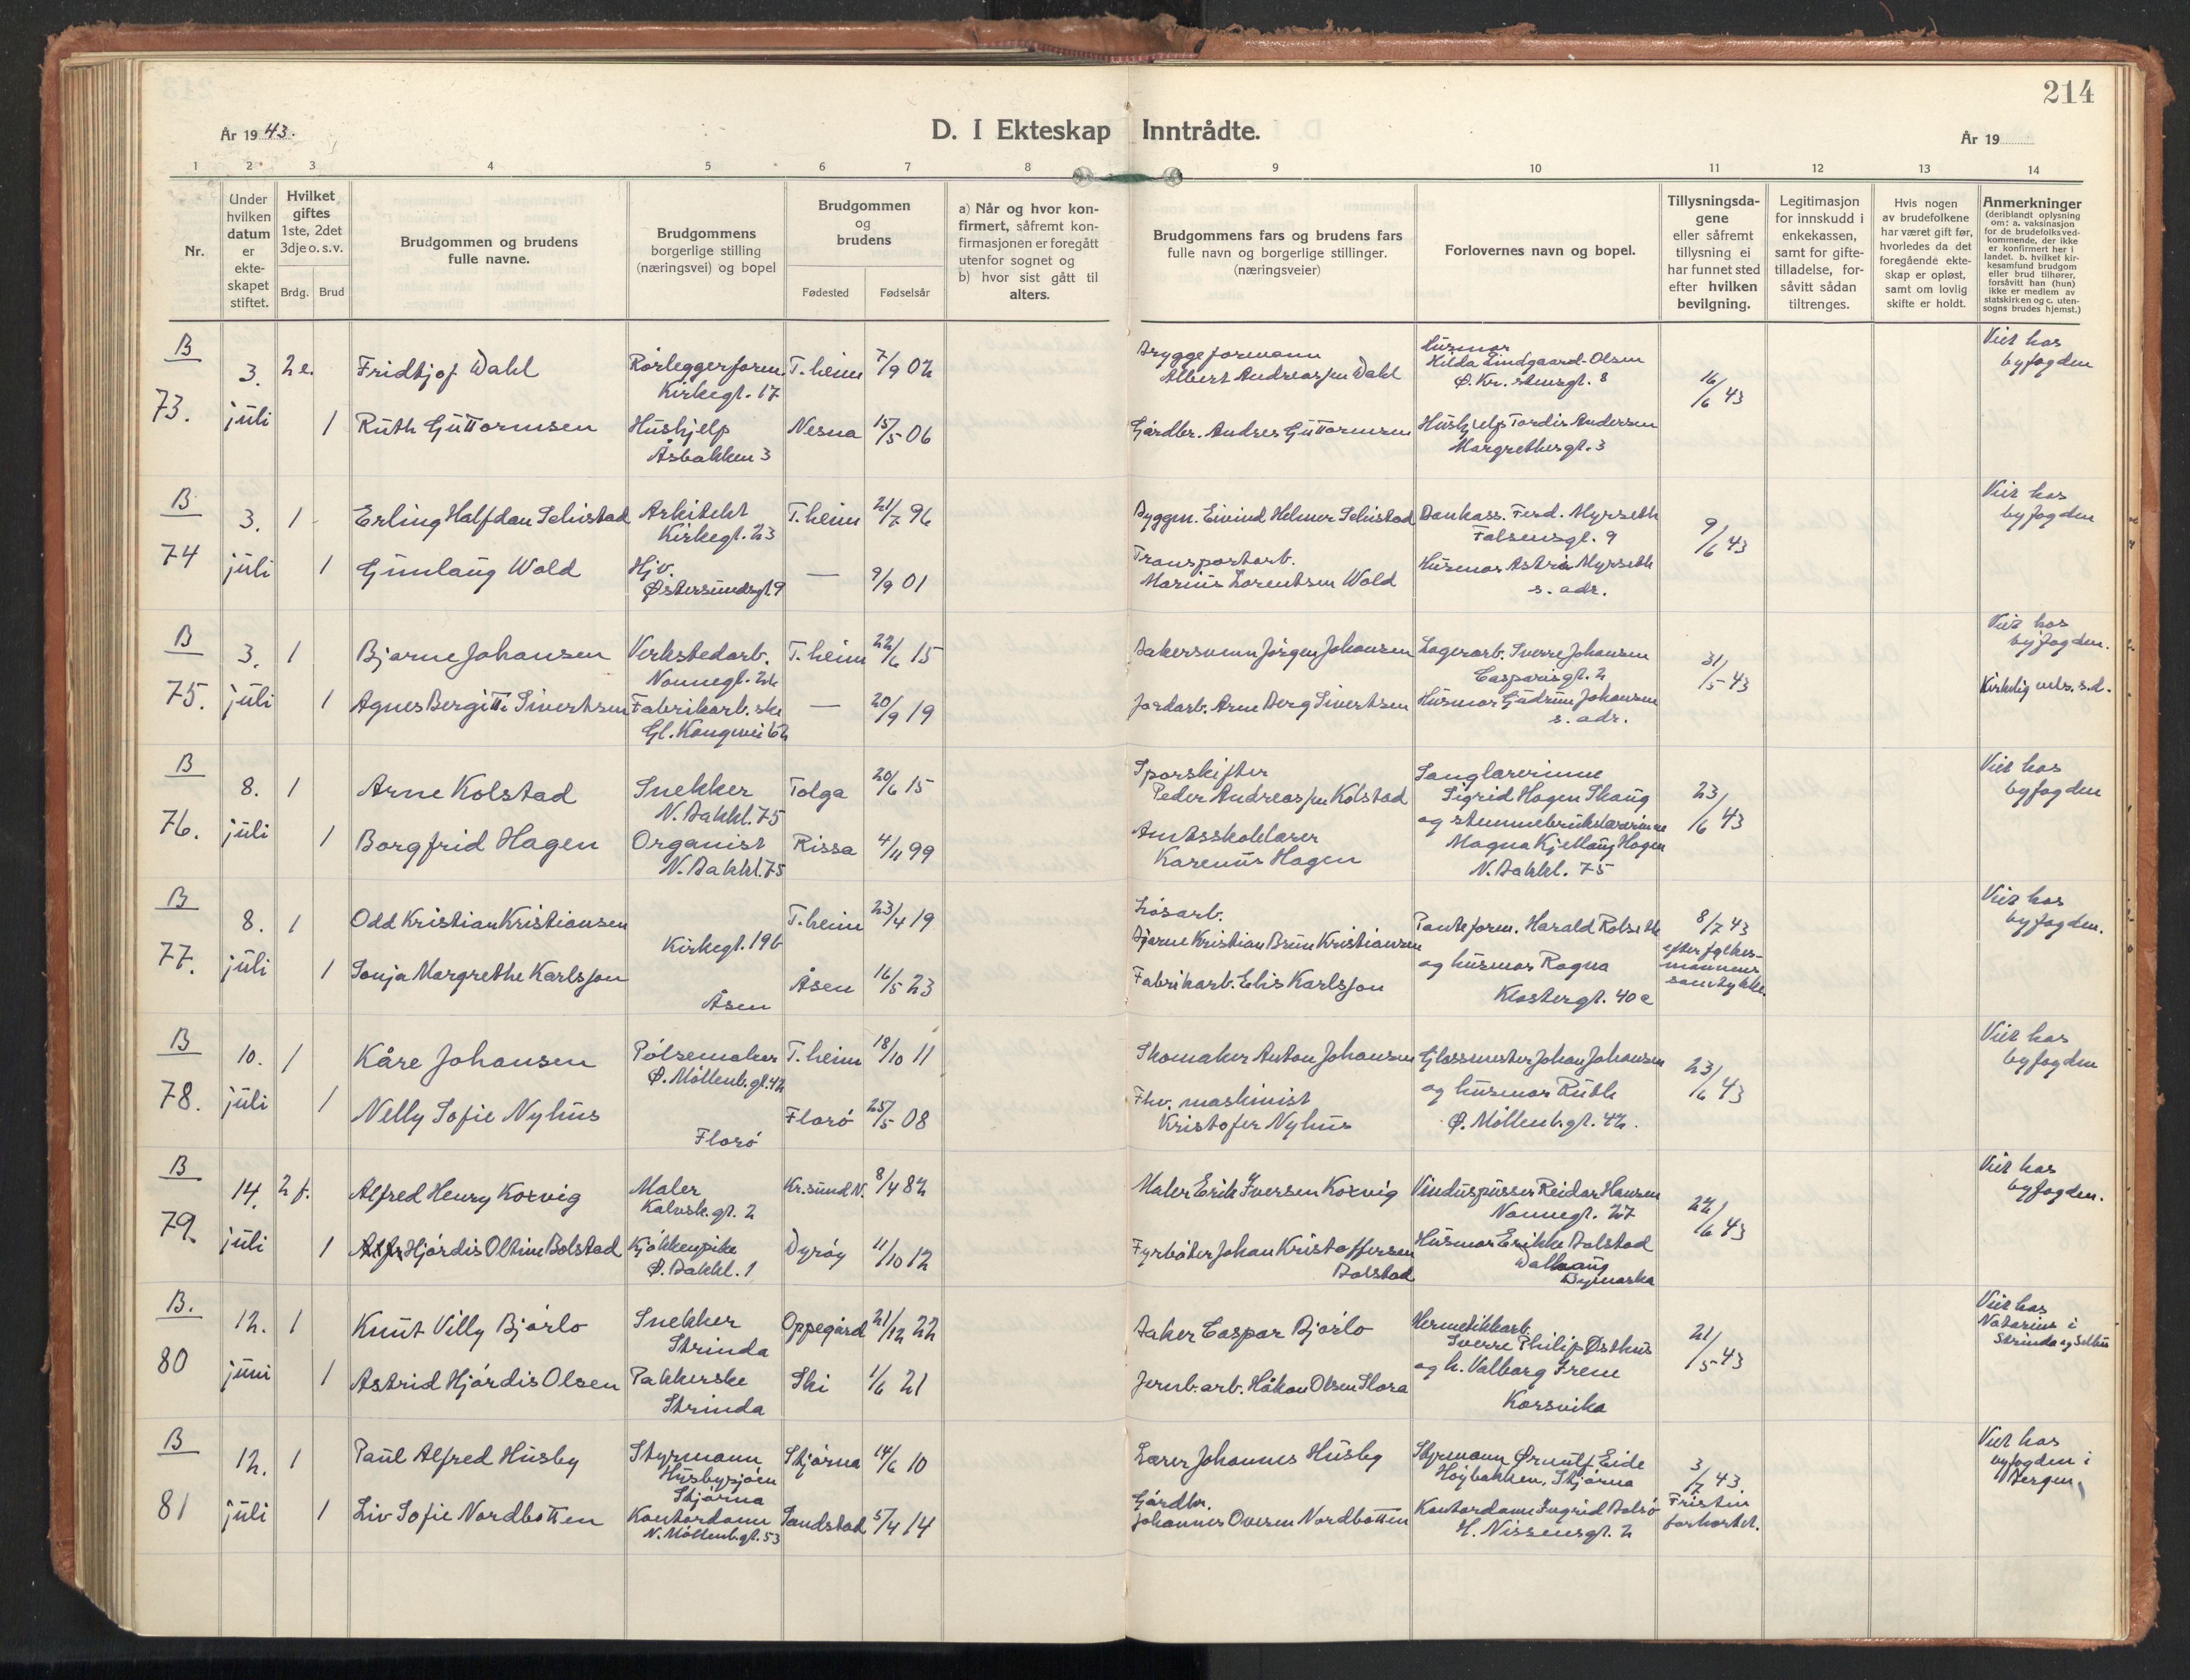 214
År 1943.
D. I Ekteskap Inntrådte.
År 19
1 2 3 4 5 6 7 8 9 10 11 12 13 14
Nr.
Under hvilken datum er ekteskapet stiftet.
Hvilket giftes 1ste, 2det 3dje o. s. v.
Brdg. Brud
Brudgommen og brudens fulle navne.
Brudgommens borgerlige stilling (næringsvei) og bopel
Brudgommen og brudens
Fødested Fødselsår
a) Når og hvor konfirmert, såfremt konfirmasjonen er foregått utenfor sognet og
b) hvor sist gått til alters.
Brudgommens fars og brudens fars fulle navn og borgerlige stillinger. (næringsveier)
Forlovernes navn og bopel.
Tillysningsdagene eller såfremt tillysning ei har funnet sted efter hvilken bevilgning.
Legitimasjon for innskudd i enkekassen, samt for giftetilladelse, forsåvitt sådan tiltrenges.
Hvis nogen av brudefolkene har været gift før, hvorledes da det foregående ekteskap er opløst, samt om lovlig skifte er holdt.
Anmerkninger (deriblandt oplysning om: a. vaksinasjon for de brudefolks vedkommende, der ikke er konfirmert her i landet. b. hvilket kirkesamfund brudgom eller brud tilhører, forsåvitt han (hun) ikke er medlem av statskirken og c. utensogns brudes hjemst.)
B
73.
3. juli
2 e. Fridtjof Dahl Rørleggerform. Kirkegt. 17 T.heim 7/9 02
Bryggeformann Albert Andreassen Dahl
Husmor Hilda Lindgaard-Olsen Ø. Kr. stensgt. 8
16/6 43
Viet hos byfogden
1 Ruth Guttormsen Hushjelp Åsbakken 3 Nesna 15/5 06
Gårdbr. Andres Guttormsen
Hushjelp Tordis Andersen Margrethesgt. 3
B
74
3. juli
1 Erling Halfdan Schistad Arkitekt Kirkegt. 23 T.heim 21/7 96
Byggm. Eivind Helmer Schistad
Bankass. Ferd. Myrseth Falsensgt. 9
9/6 43
Viet hos byfogden
1 Gunlaug Wold Hjv. Østersundsgt. 9 — 9/9 01
Transportarb. Marius Lorentsen Wold
Husmor Astri Myrseth s. adr.
B
75.
3. juli
1 Bjarne Johansen Verkstedarb. Nonnegt. 26 T.heim 22/6 15
Bakersvenn Jørgen Johansen
Lagerarb. Sverre Johansen Casparisgt. 2
31/5 43
Viet hos byfogden.
Kirkelig vels. s.d.
1 Agnes Bergitte Sivertsen Fabrikarb.ske Gl. Kongevei 62 — 20/9 19
Jordarb. Arne Berg Sivertsen
Husmor Gudrun Johansen s. adr.
B
76.
8. juli
1 Arne Kolstad Snekker N. Bakkl. 75 Tolga 20/6 15
Sporskifter Peder Andreassen Kolstad
Sanglærerinne Sigrid Hagen Skaug
og stemmebrukslærerinne Magna Kjellaug Hagen N. Bakkl. 75
23/6 43
Viet hos byfogden
1 Borgfrid Hagen Organist N. Bakkl. 75 Rissa 4/11 99
Amtsskolelærer Karenus Hagen
B
77.
8. juli
1 Odd Kristian Kristiansen Kirkegt. 19b T.heim 23/4 19
Løsarb. Bjarne Kristian Brun Kristiansen
Panteform. Harald Rolseth og husmor Ragna Klostergt. 40 c
8/7 43 efter fylkesmannens samtykke.
Viet hos byfogden.
1 Sonja Margrethe Karlsson Åsen Åsen 16/5 23
Fabrikarb. Elis Karlsson
B
78.
10. juli
1 Kåre Johansen Pølsemaker Ø. Møllenb.gt. 42 T.heim 18/10 11
Skomaker Anton Johansen
Glassmester Johan Johansen og husmor Ruth Ø. Møllenb.gt. 42.
23/6 43
Viet hos byfogden
1 Nelly Sofie Nyhus Florø Florø 25/5 08
Fhv. maskinist Kristofer Nyhus
B
79.
14. juli
2 f. Alfred Henry Korvig Maler Kalvsk.gt. 2 Kr.sund N. 8/4 82
Maler Erik Iversen Korvig
Vinduspusser Reidar Hansen Nonnegt. 27
22/6 43
Viet hos byfogden.
1 Hjørdis Oltine Bolstad Kjøkkenpike Ø. Bakkl. 1 Dyrøy 11/10 12
Fyrbøter Johan Kristoffersen Bolstad
Husmor Erikke Bolstad Bymarka
B.
80
12. juni
1 Knut Villy Bjørlo Snekker Strinda Oppegård 21/12 22
Baker Caspar Bjørlo
Hermetikkarb. Sverre Philip Østhus og h. Valborg Irene Korsvika
21/5 43
Viet hos Notarius i Strinda og Selbu
1 Astrid Hjørdis Olsen Pakkerske Strinda Ski 1/6 21
Jernb.arb. Håkon Olsen Skora
B
81
12. juli
1 Paul Alfred Husby Styrmann Husbysjøen Stjørna Stjørna 14/6 10
Lærer Johannes Husby
Styrmann Ørnulf Eide Høybakken, Stjørna
3/7 43 Fristen forkortet.
Viet hos byfogden i Bergen
1 Liv Sofie Nordbotten Kontordame N. Møllenb.gt. 53 Sandstad 5/4 14
Gårdbr. Johannes Oversen Nordbotten
Kontordame Ingrid Balsø H. Nissensgt. 2